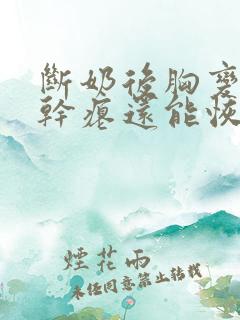 斷奶後胸變
幹癟還能恢
煙花雨
未經同意禁止轉載